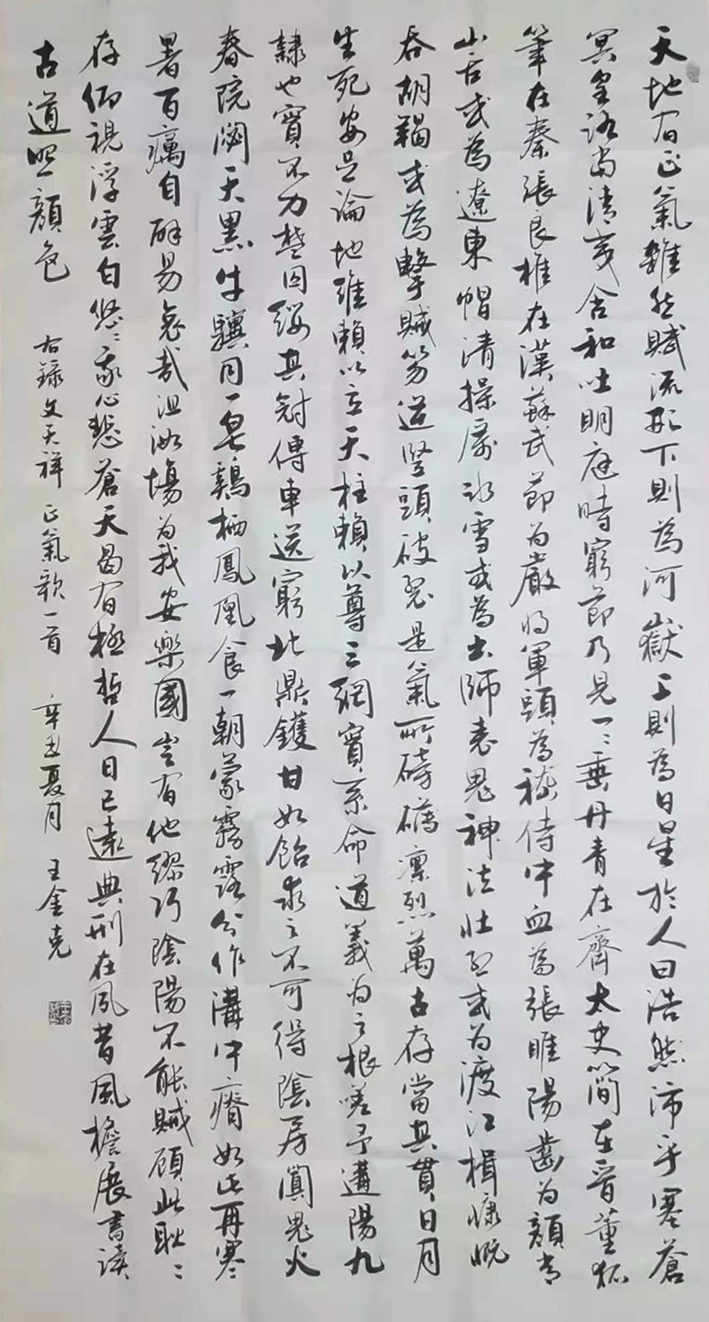 天地有正氣雜然賦流形下則為河嶽上則為日星於人曰浩然沛乎塞蒼
冥皇路當清夷含和吐明庭時窮節乃見一〻垂丹青在齊太史簡在晉董狐
筆在秦張良椎在漢蘇武節為嚴將軍頭為嵇侍中血為張睢陽齒為顏常
山舌或為遼東帽清操厲冰雪或為出師表鬼神泣壯烈或為渡江楫慷慨
吞胡羯或為擊賊笏逆豎頭破裂是氣所磅礴凛烈萬古存當其貫日月
生死安足論地維賴以立天柱賴以尊三綱實系命道義為之根嗟予遘陽九
隸也實不力楚囚纓其冠傳車送窮北鼎鑊甘如飴求之不可得陰房闐鬼火
春院閟天黑牛驥同一皂鷄栖鳳凰食一朝蒙霧露分作溝中瘠如此再寒
暑百癘自辟易哀哉沮洳場為我安樂國豈有他繆巧陰陽不能賊顧此耿〻
存仰視浮雲白悠〻我心悲蒼天曷有極哲人日已遠典刑在夙昔風檐展書讀
古道照顏色 右錄文天祥正氣歌一首 辛丑夏月 王金克